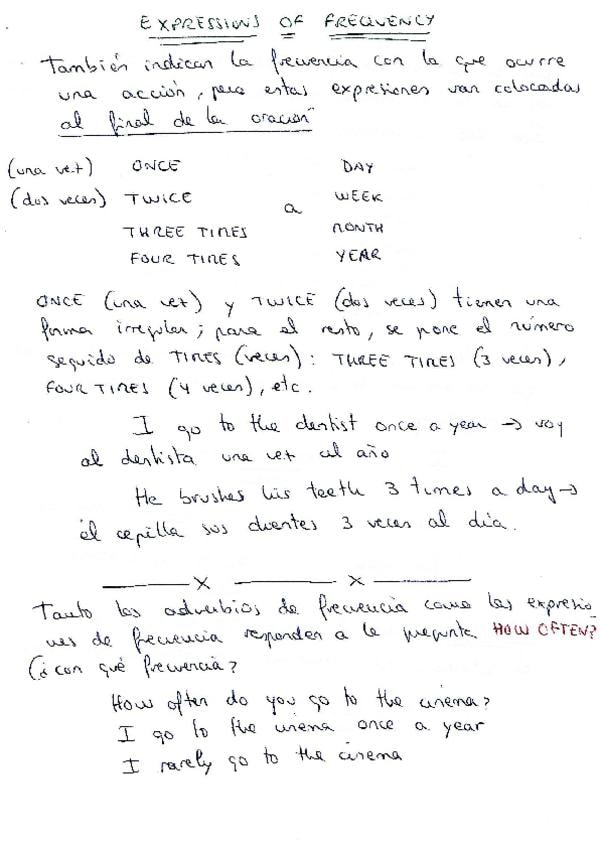 EXPRESSIONS OF FREQUENCY
También indican la frecuencia con la que ocurre
una acción, pero estas expresiones van colocadas
al final de la oración"
(una vez) ONCE DAY
(dos veces) TWICE a WEEK
THREE TIMES MONTH
FOUR TIMES YEAR
ONCE (una vez) y TWICE (dos veces) tienen una
forma irregular; para el resto, se pone el número
seguido de TIMES (veces): THREE TIMES (3 veces),
FOUR TIMES (4 veces), etc.
I go to the dentist once a year → voy
al dentista una vez al año
He brushes his teeth 3 times a day →
él cepilla sus dientes 3 veces al día.
x x
Tanto los adverbios de frecuencia como las expresio
nes de frecuencia responden a la pregunta HOW OFTEN?
(¿con qué frecuencia?
How often do you go to the cinema?
I go to the cinema once a year
I rarely go to the cinema